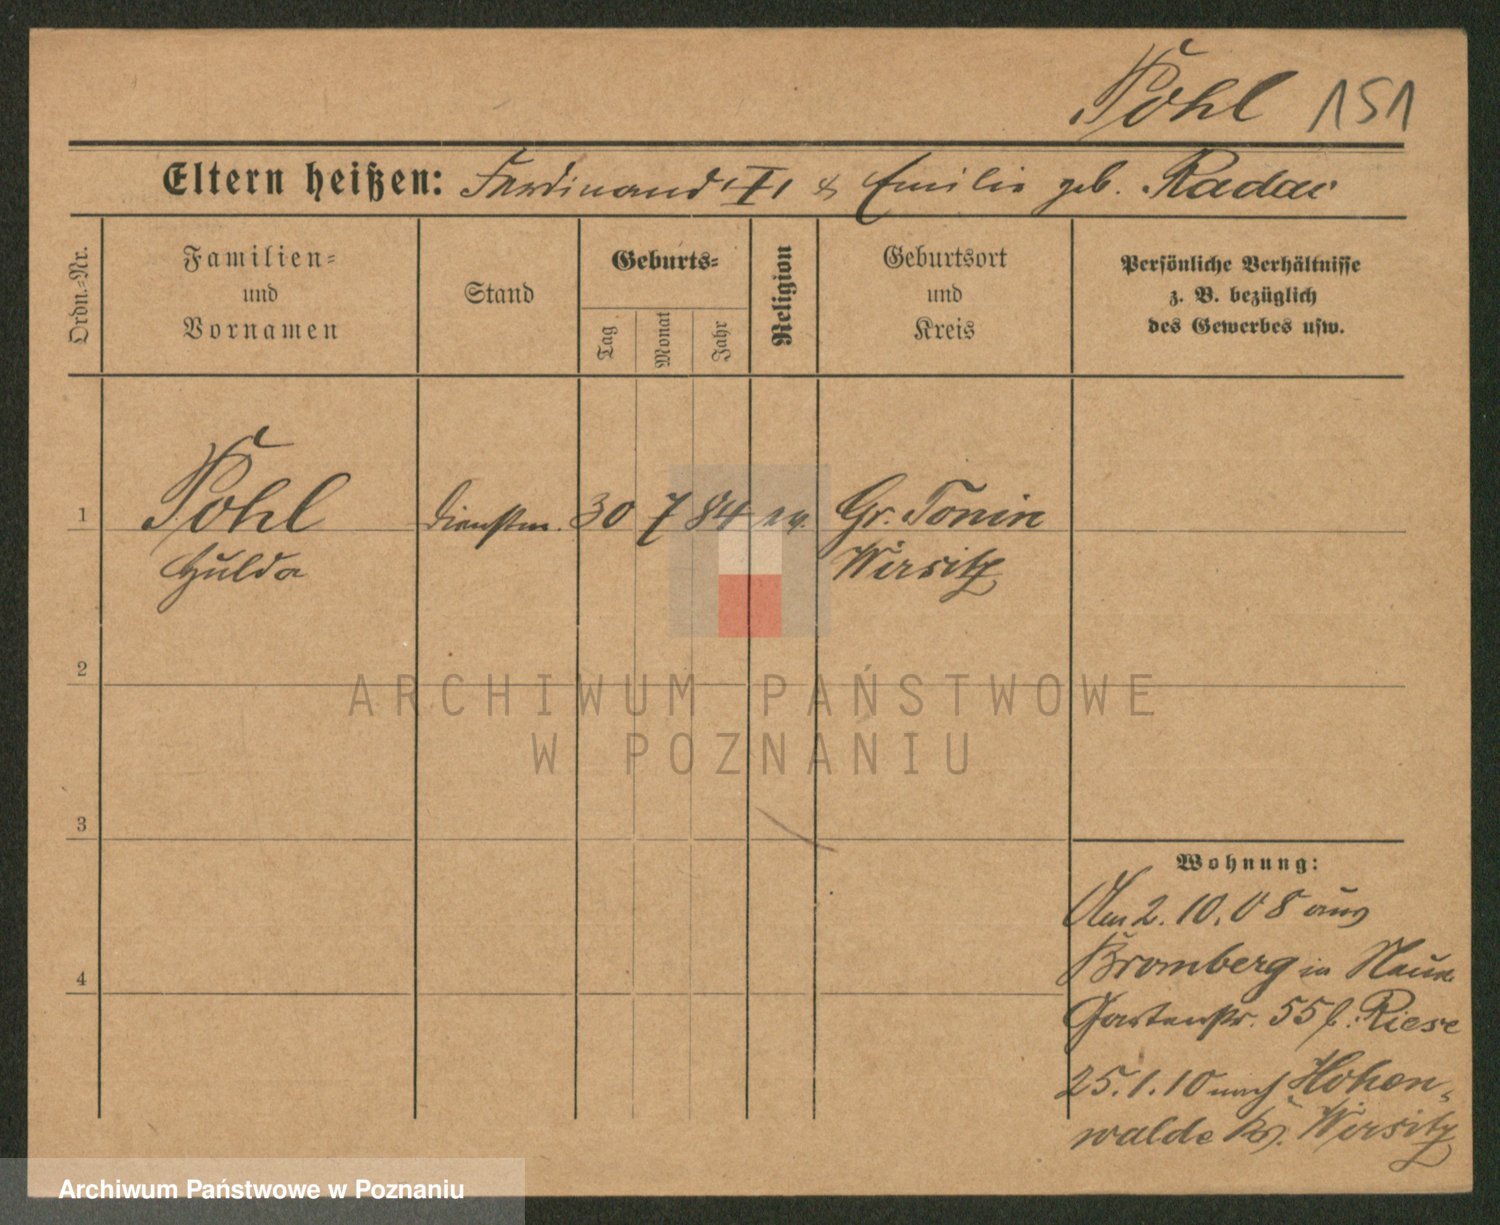 Pohl 151
Eltern heißen: Ferdinand I, & Emilie geb. Radac
Ordn.-Nr.
Familien-
und
Vornamen
Stand
Geburts-
Tag
Monat
Jahr
Religion
Geburtsort
und
Kreis
Persönliche Verhältnisse
z. B. bezüglich
des Gewerbes usw.
1 Pohl Dienstm. 30 7 84 ev. Gr. Tonin
Hulda Wirsitz
2
ARCHIWUM PAŃSTWOWE
W POZNANIU
3
Wohnung:
Am 2. 10. 08 aus
Bromberg in Neue
4
Gartenstr. 55 b. Riese
25. 1. 10 nach Hohen-
walde Kr. Wirsitz
Archiwum Państwowe w Poznaniu